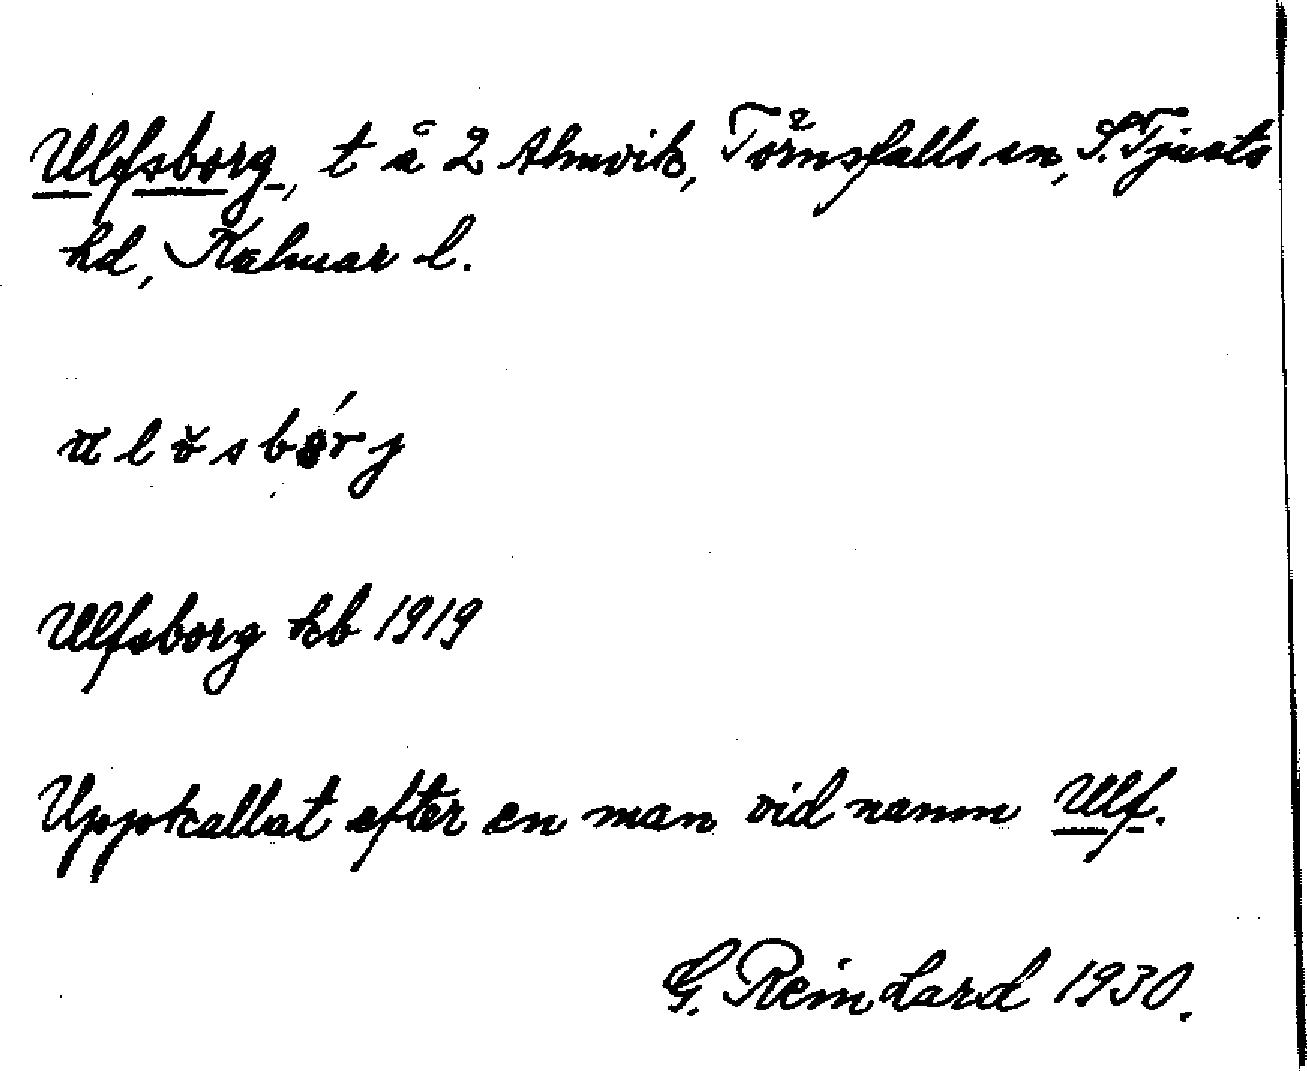 Ulfsborg, t å 2 Almvik, Törnsfalls sn, S. Tjusts
hd, Kalmar l.
Ulfsborg hb 1919
Uppkallat efter en man vid namn Ulf.
G. Reinhard 1930.